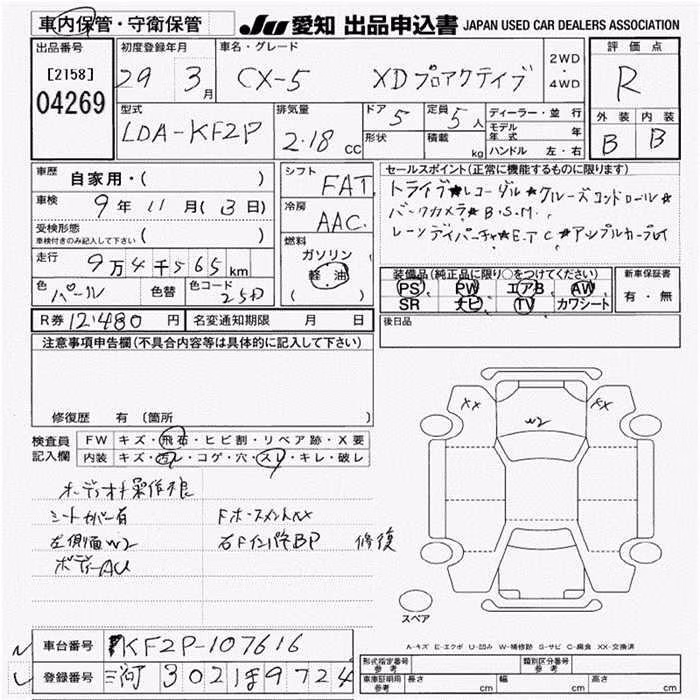 車内保管・守衛保管
JU 愛知 出品申込書 JAPAN USED CAR DEALERS ASSOCIATION
出品番号 初度登録年月 車名・グレード 2WD・4WD 評価点
[2158] 29 3月 CX-5 XDプロアクティブ R
04269
型式 排気量 ドア 5 定員 5人 ディーラー・並行 外装 内装
LDA-KF2P 2.18 CC 形状 積載 kg モデル年式 年 B B
ハンドル 左・右
車歴 自家用・( ) シフト FAT セールスポイント(正常に機能するものに限ります)
車検 9年 11月(13日) 冷房 AAC ドライブ★レコーダル★クルーズコントロール★
受検形態 車検付きのみ記入して下さい ( ) バックカメラ★B.S.M.
走行 9万4千565km 燃料 ガソリン レーンディパーチャ★E.T.C★アップルカープレイ
軽油
( )
色 パール 色替 色コード 25D
装備品(純正品に限り○をつけてください) 新車保証書
PS PW エアB AW 有・無
SR ナビ TV カワシート
R券 12,480円 名変通知期限 月 日 後日品
注意事項申告欄(不具合内容等は具体的に記入して下さい)
修復歴 有 〔箇所
XX XX
W2
検査員記入欄 FW キズ・飛石・ヒビ割・リペア跡・X要
内装 キズ・汚レ・コゲ・穴・スレ・キレ・破レ
オーディオ操作娘
シートカバー有 Fホースメントバックス
左側面W2 右FインパネBP 修復
ボディーAU
スペア
A-キズ E-エクボ U-凹み W-補修跡 S-サビ C-腐食 XX-交換済
車台番号 KF2P-107616
登録番号 三河 302 ほ 9724
形式指定番号 参考 類別区分番号 参考
車庫証明用 参考 長さ cm 幅 cm 高さ cm